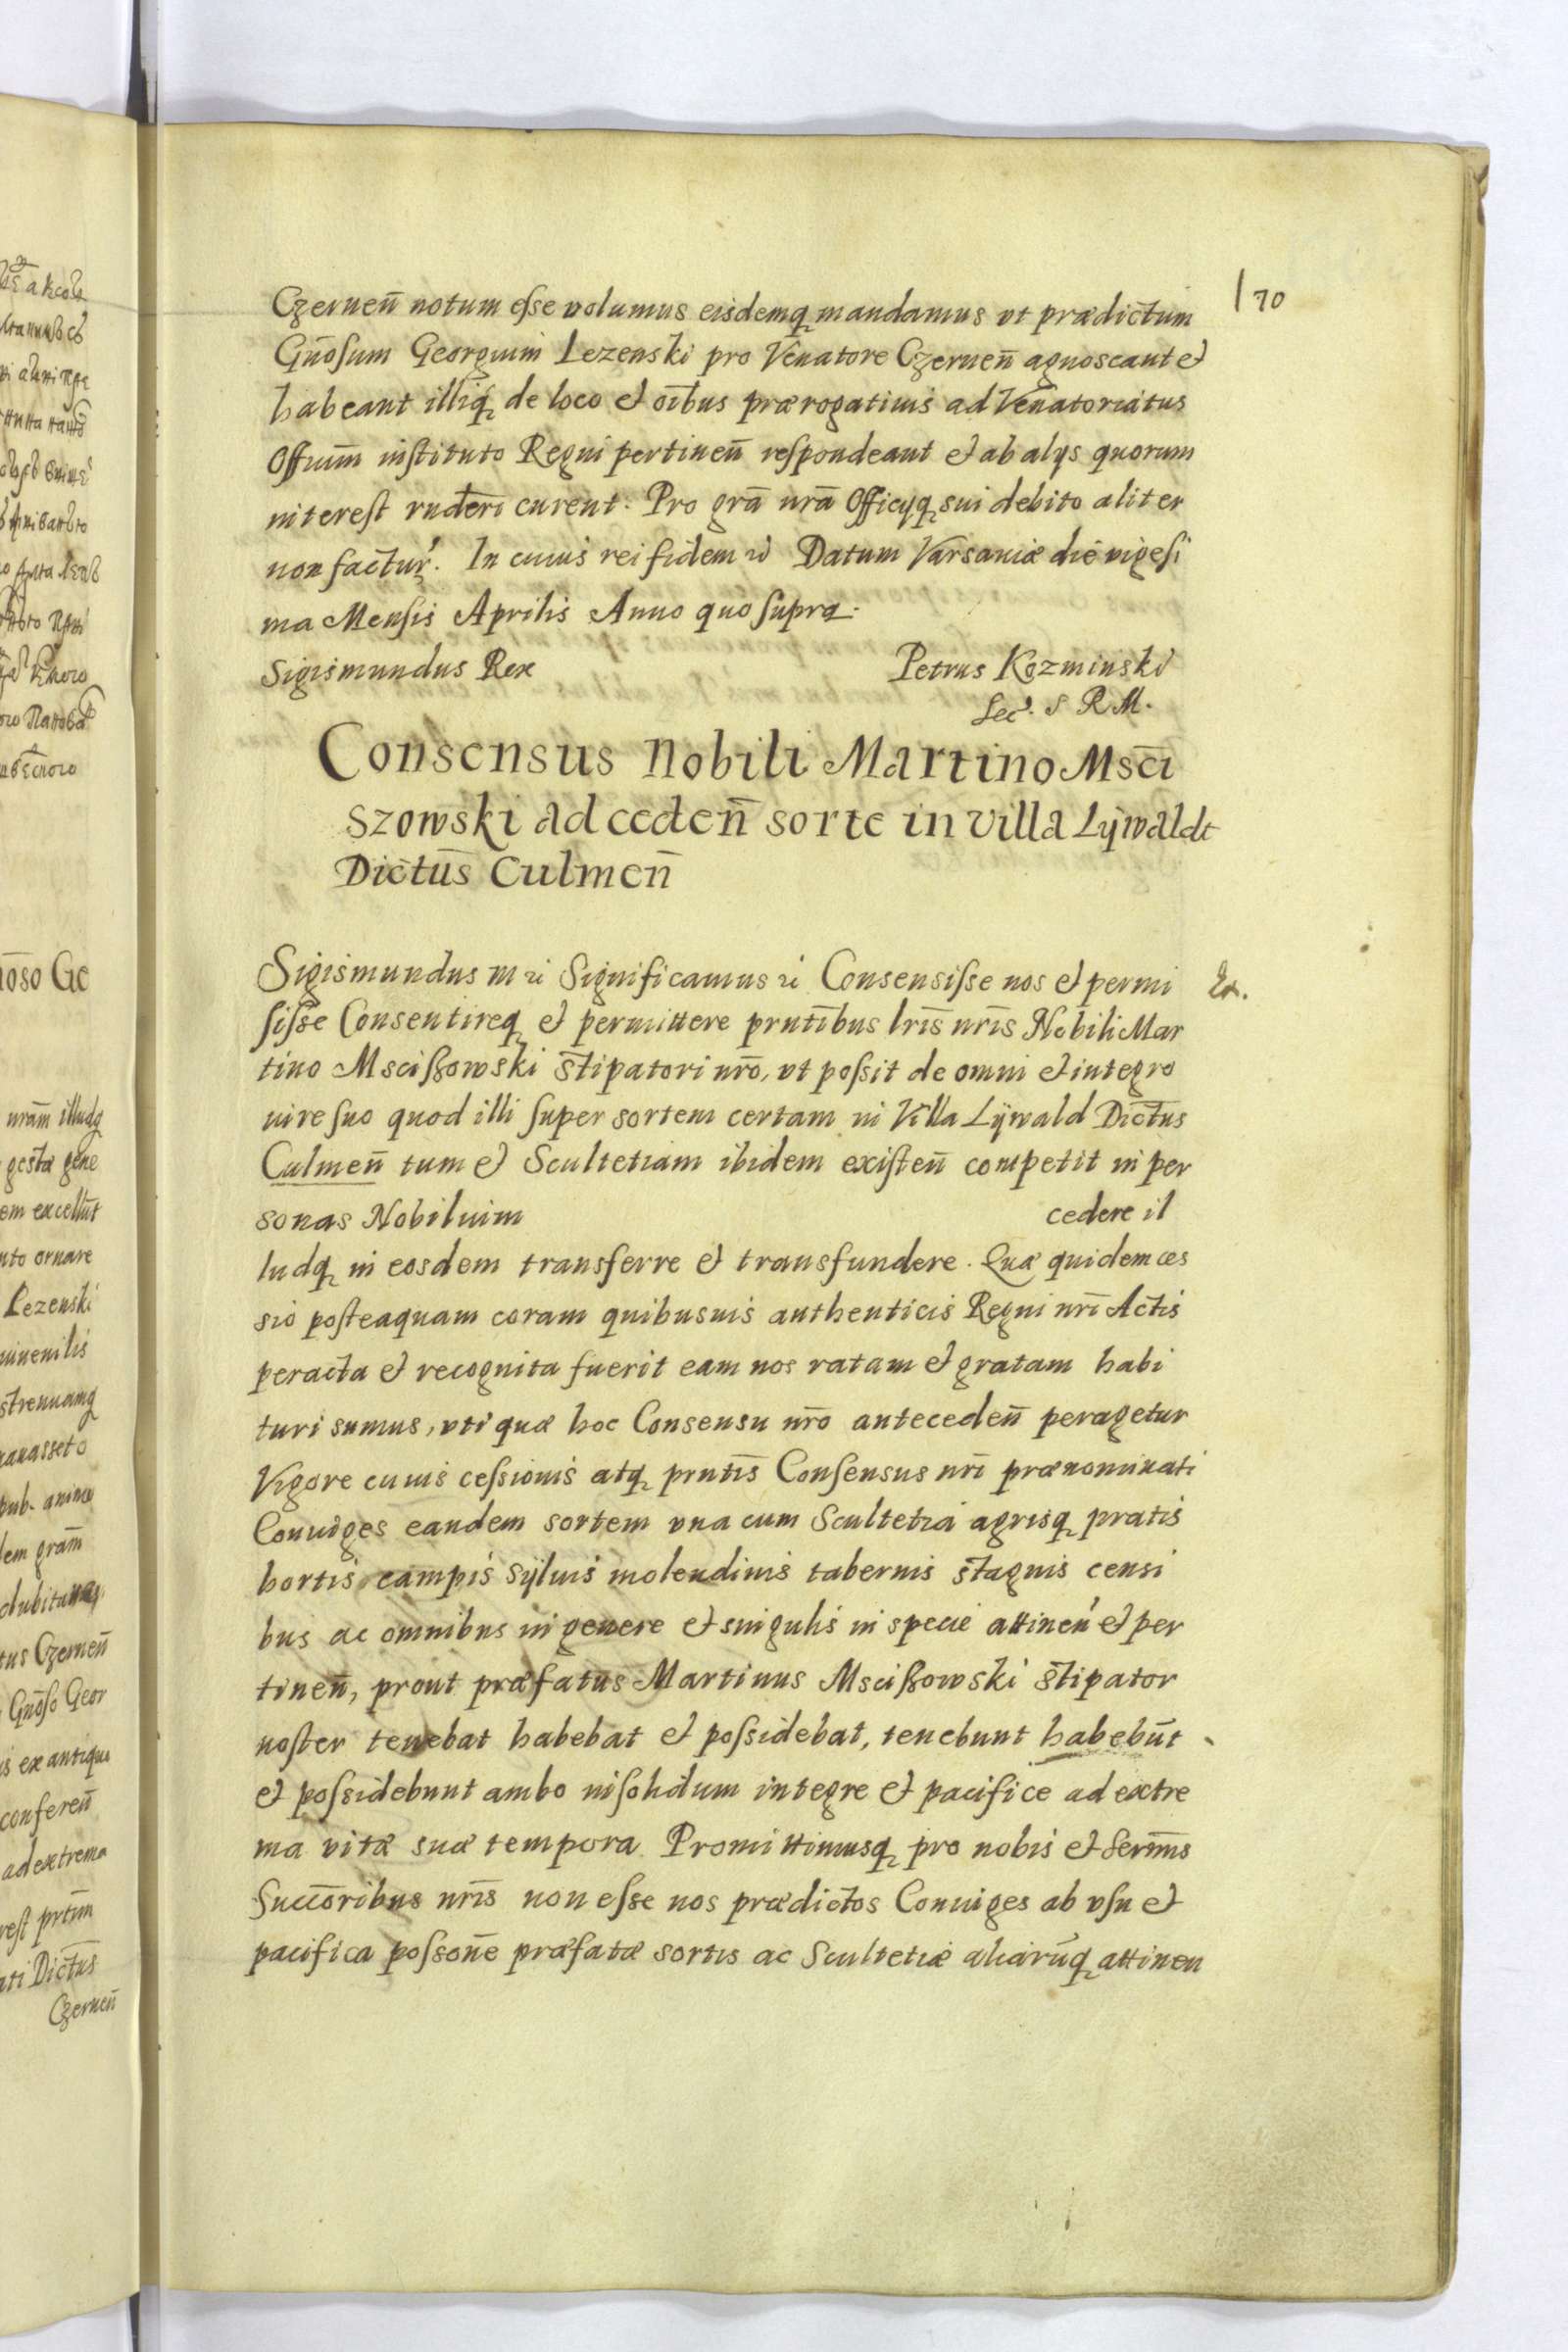 70
Czernen̄ notum esse volumus eisdemq̨ mandamus vt prædictum
Gn̄osum Georgium Lezenski pro Venatore Czernen̄ agnoscant et
habeant illiq̨ de loco et oībus prærogatiuis ad Venatoriatus
Offium̄ instituto Regni pertinen̄ respondeant et ab alijs quorum
interest curent. Pro grā nrā Officijq̨ sui debito aliter
non factur̄. In cuius rei fidem Datum Varsauiæ die vigesi
ma Mensis Aprilis Anno quo supra.
Sigismundus Rex Petrus Kozminski
Sec. S R M.
Consensus Nobili Martino Msci
szowski ad ceden̄ sorte in villa Lÿwaldt
Dictus̄ Culmen̄
Sigismundus III Significamus Consensisse nos et permi
Ex.
sisse Consentireq̨ et permittere prntībus lrīs nrīs Nobili Mar
tino Msciszowski stipatori nrō, vt possit de omni et integro
iure suo quod illi super sortem certam in Villa Lÿwald Dictus̄
Culmen̄ tum et Scultetiam ibidem existen̄ competit in per
sonas Nobilium cedere il
ludq̨ in eosdem transferre et transfundere. Quæ quidem ces
sio posteaquam coram quibusuis authenticis Regni nrī Actis
peracta et recognita fuerit eam nos ratam et gratam habi
turi sumus, vti quæ hoc Consensu nrō anteceden̄ peragetur
Vigore cuius cessionis atq̨ prntīs Consensus nrī prænominati
Coniuges eandem sortem vna cum Scultetia agrisq̨ pratis
hortis campis sÿluis molendinis tabernis stagnis censi
bus ac omnibus in genere et singulis in specie attinen̄ et per
tinen̄, prout præfatus Martinus Msciszowski stipator
noster tenebat habebat et possidebat, tenebunt habebūt
et possidebunt ambo insolidum integre et pacifice ad extre
ma vitæ suæ tempora Promittimusq̨ pro nobis et Serm̄is
Succōribus nrīs non esse nos prædictos Coniuges ab vsu et
pacifica possonē præfatæ sortis ac Scultetiæ aliarūq̨ attinen